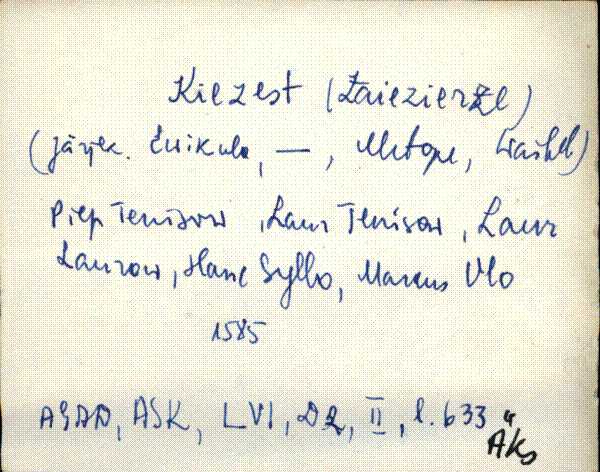 Kiezest (Zaiezierze)
(järjek. Enikula, —, Metope, Waśkel)
Piep Tenisow, Laur Tenisow, Laur
Laurow, Hanc Syllo, Marcus Ulo
1585
AGAD, ASK, LVI, D2, II, l. 633"
Äks